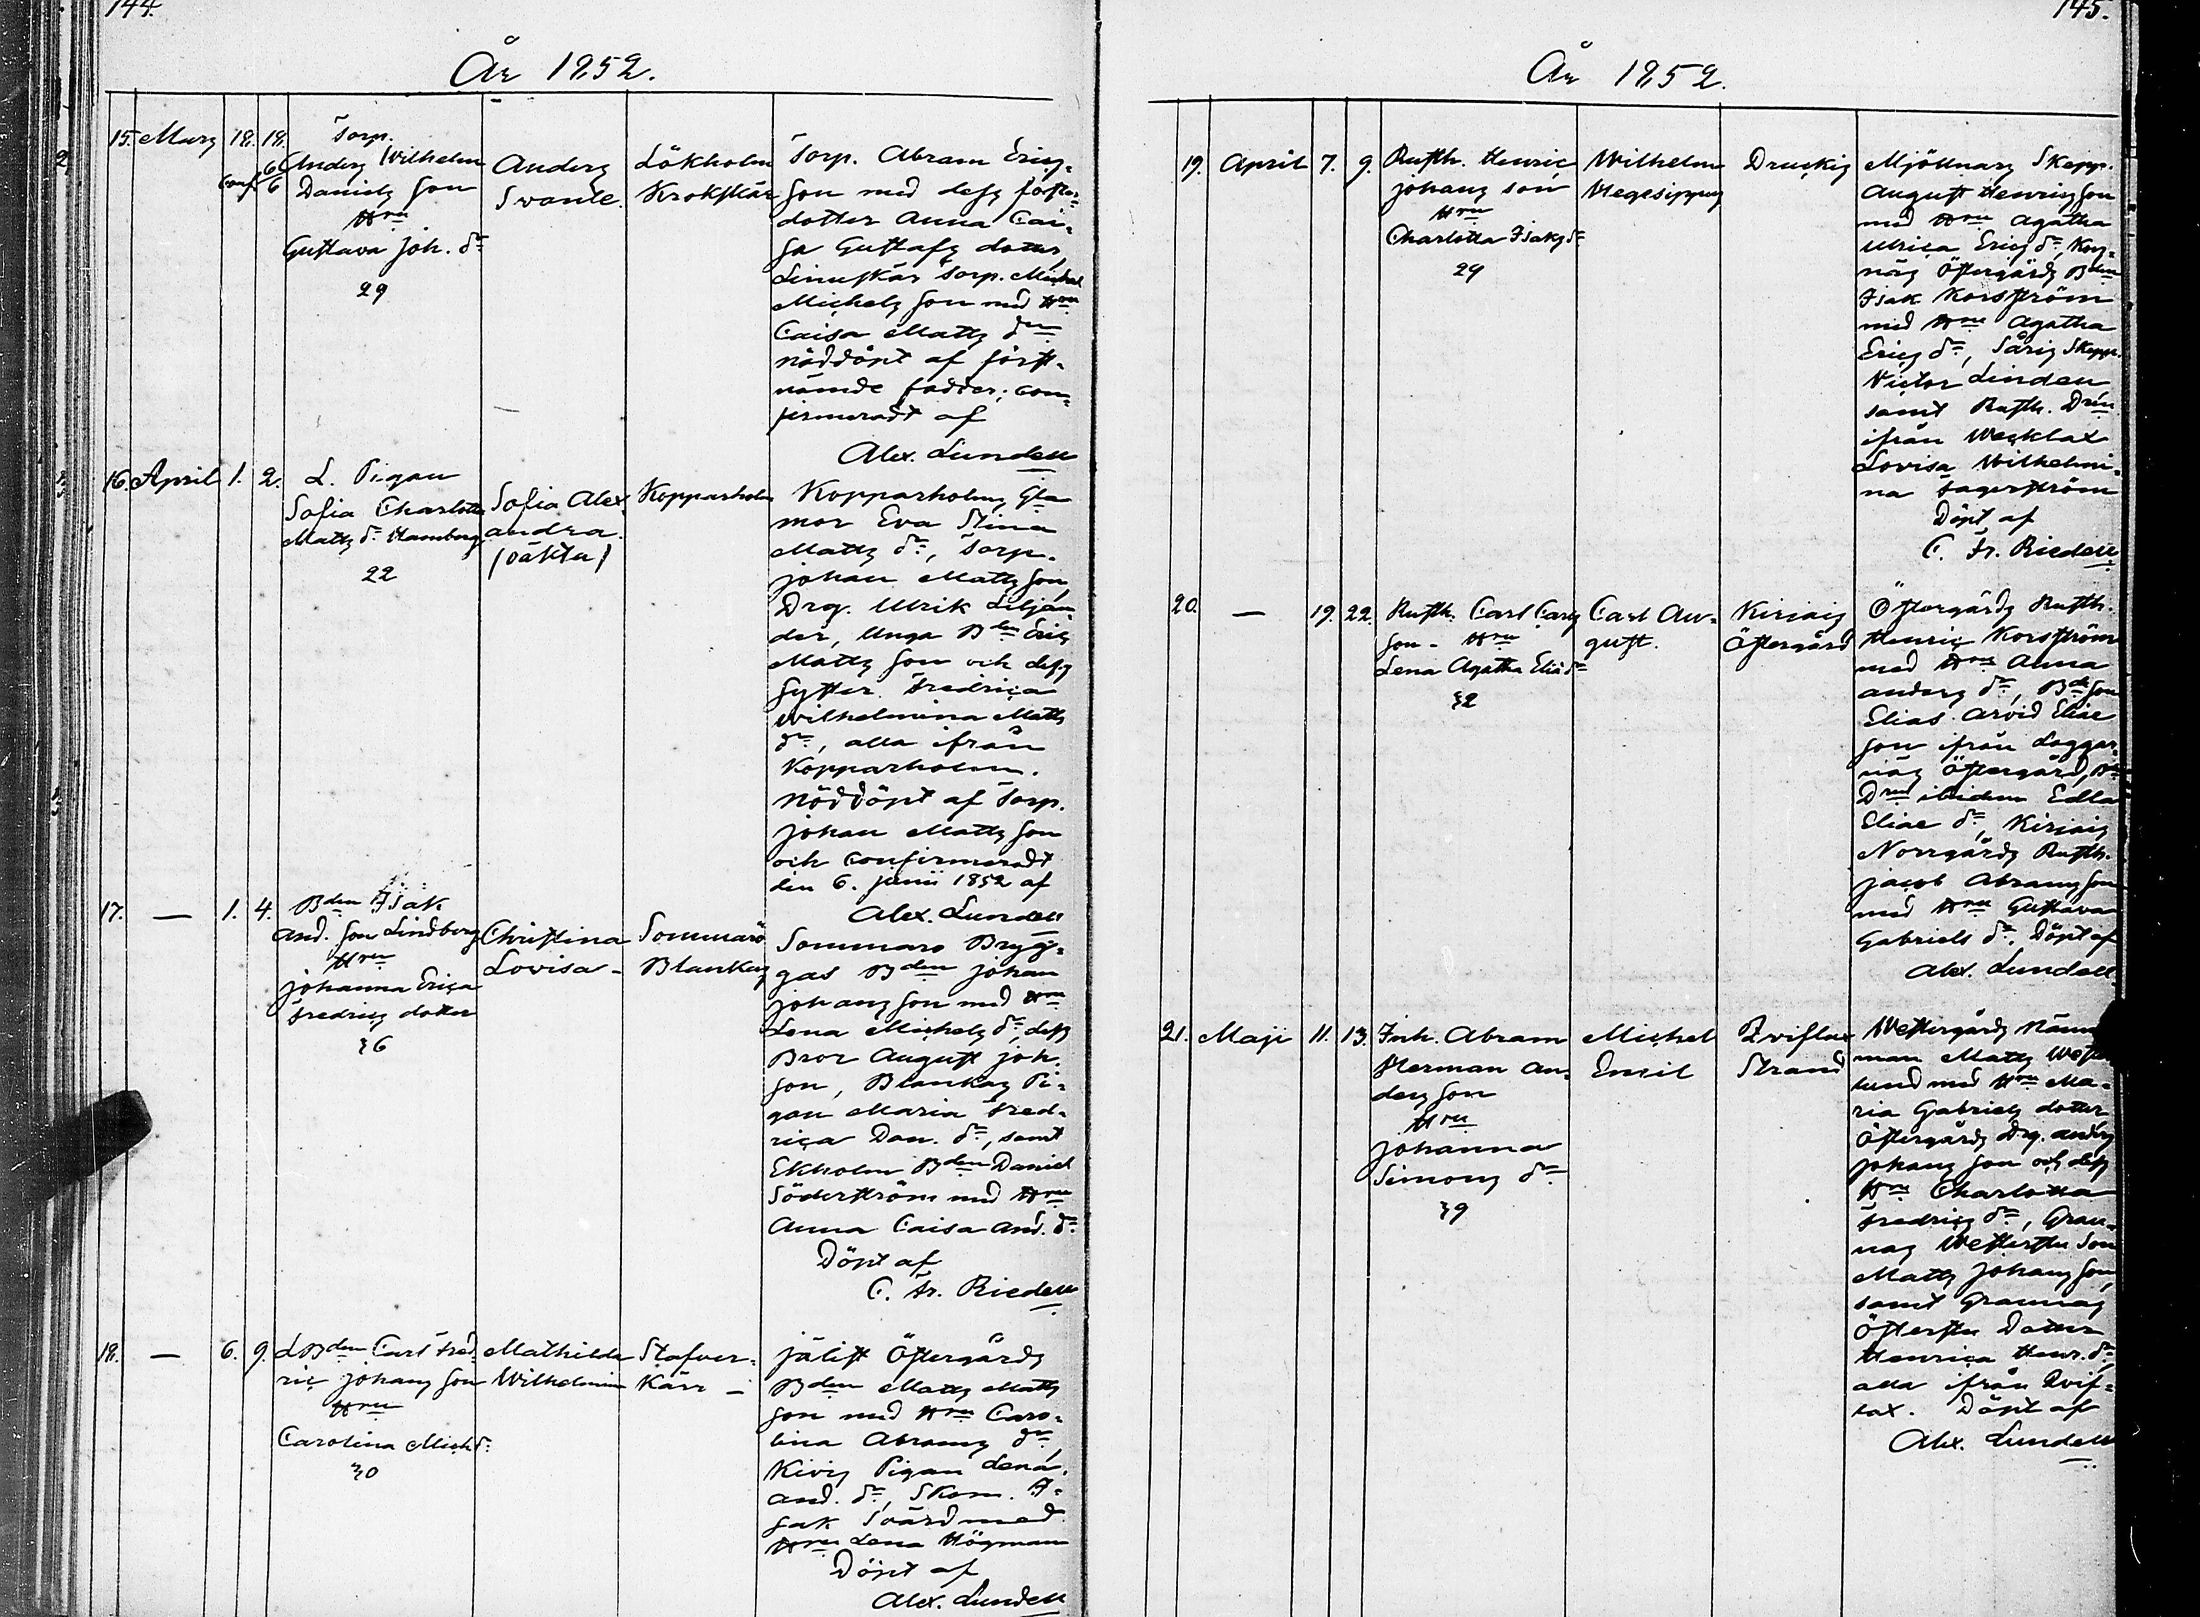 144.
År 1852.
15. Mars 18. 18.
conf. 6/6
Torp.
Anders Wilhelm
Daniels son
Hru
Gustava Joh. dr
29
Anders
Svante.
Lökholm
Krokskär
Torp. Abram Erics
son med dess foster-
dotter Anna Cai-
sa Gustafs dotter,
Linuskär Torp. Michel
Michels son med Hru
Caisa Matts dr
nöddöpt af först-
nämde fadder; con-
firmeradt af
Alex. Lundell
16. April 1. 2.
L. Pigan
Sofia Charlotta
Matts dr Hamberg
22
Sofia Alex
andra.
(oäkta)
Kopparholm
Kopparholms Gla
mor Eva Stina
Matts dr, Torp.
Johan Matts son,
Drg. Ulrik Liljan-
der, Unga Bden Erik
Matts son och dess
syster Fredrica
Wilhelmina Matts
dr, alla ifrån
Kopparholm.
Nöddöpt af Torp.
Johan Matts son
och confirmeradt
den 6. Junii 1852 af
Alex. Lundell
17. — 1. 4.
Bden Isak
And. son Lindberg
Hru
Johanna Erica
Fredrics dotter
36
Christina
Lovisa -
Sommarö
Blankas
Sommarö Bryg-
gas Bden Johan
Johans son med Hru
Lena Michels dr, dess
Bror August Joh.
son, Blankas Pi-
gan Maria Fred-
rica Dan. dr, samt
Ekholm Bden Daniel
Söderström med Hru
Anna Caisa And. dr
Döpt af
C. Fr. Riedell
18. — 6. 9.
L Bden Carl Fred-
ric Johans son
Hru
Carolina Mich dr
30
Mathilda
Wilhelmin
Stafver-
kärr -
Jälist Östergårds
Bden Matts Matts
son med Hru Caro-
lina Abrams dr,
Kivis Pigan Lena
And. dr, Skom. I-
sak Svärd med
Hru Lena Högman
Döpt af
Alex. Lundell
145.
År 1852.
19. April 7. 9.
Rusth. Henric
Johans son
Hru
Charlotta Isaks dr
29
Wilhelm
Hegesippus
Druckis
Mjölnars Skepp.
August Henrics son
med Hru Agatha
Ulrica Erics dr, Kors-
näs Östergårds Bden
Isak Korsström
med Hru Agatha
Erics dr, Säris Skepp.
Victor Linden
samt Rusth. Drn
ifrån Wecklax
Lovisa Wilhelmi-
na Fagerström
Döpt af
C. Fr. Riedell
20. — 19. 22.
Rusth. Carl Carls
son - Hru
Lena Agatha Eliæ dr
32
Carl Au-
gust.
Kirjais
Östergård
Östergårds Rusth.
Henric Korsström
med Hru Anna
Anders dr, Bde son
Elias Arvid Eliæ
son ifrån Loggar-
näs Östergård, Bde
Drn ibidem Edla
Eliæ dr, Kirjais
Norrgårds Rusth.
Jacob Abrams son
med Hru Gustava
Gabriels dr. Döpt af
Alex. Lundell
21. Maji 11. 13.
Inh. Abram
Herman An-
ders son
Hru
Johanna
Simons dr
39
Michel
Emil
Qviflax
Strand
Westergårds Nämn
man Matts West
lund med Hru Ma-
ria Gabriels dotter
Östergårds Drg. Anders
Johans son och dess
Hru Charlotta
Fredrics dr, Gran-
näs Westerstu Son
Matts Johans son,
samt Grannäs
Österstu Dotter
Henrica Henr. dr,
alla ifrån Qvif-
lax. Döpt af
Alex. Lundell